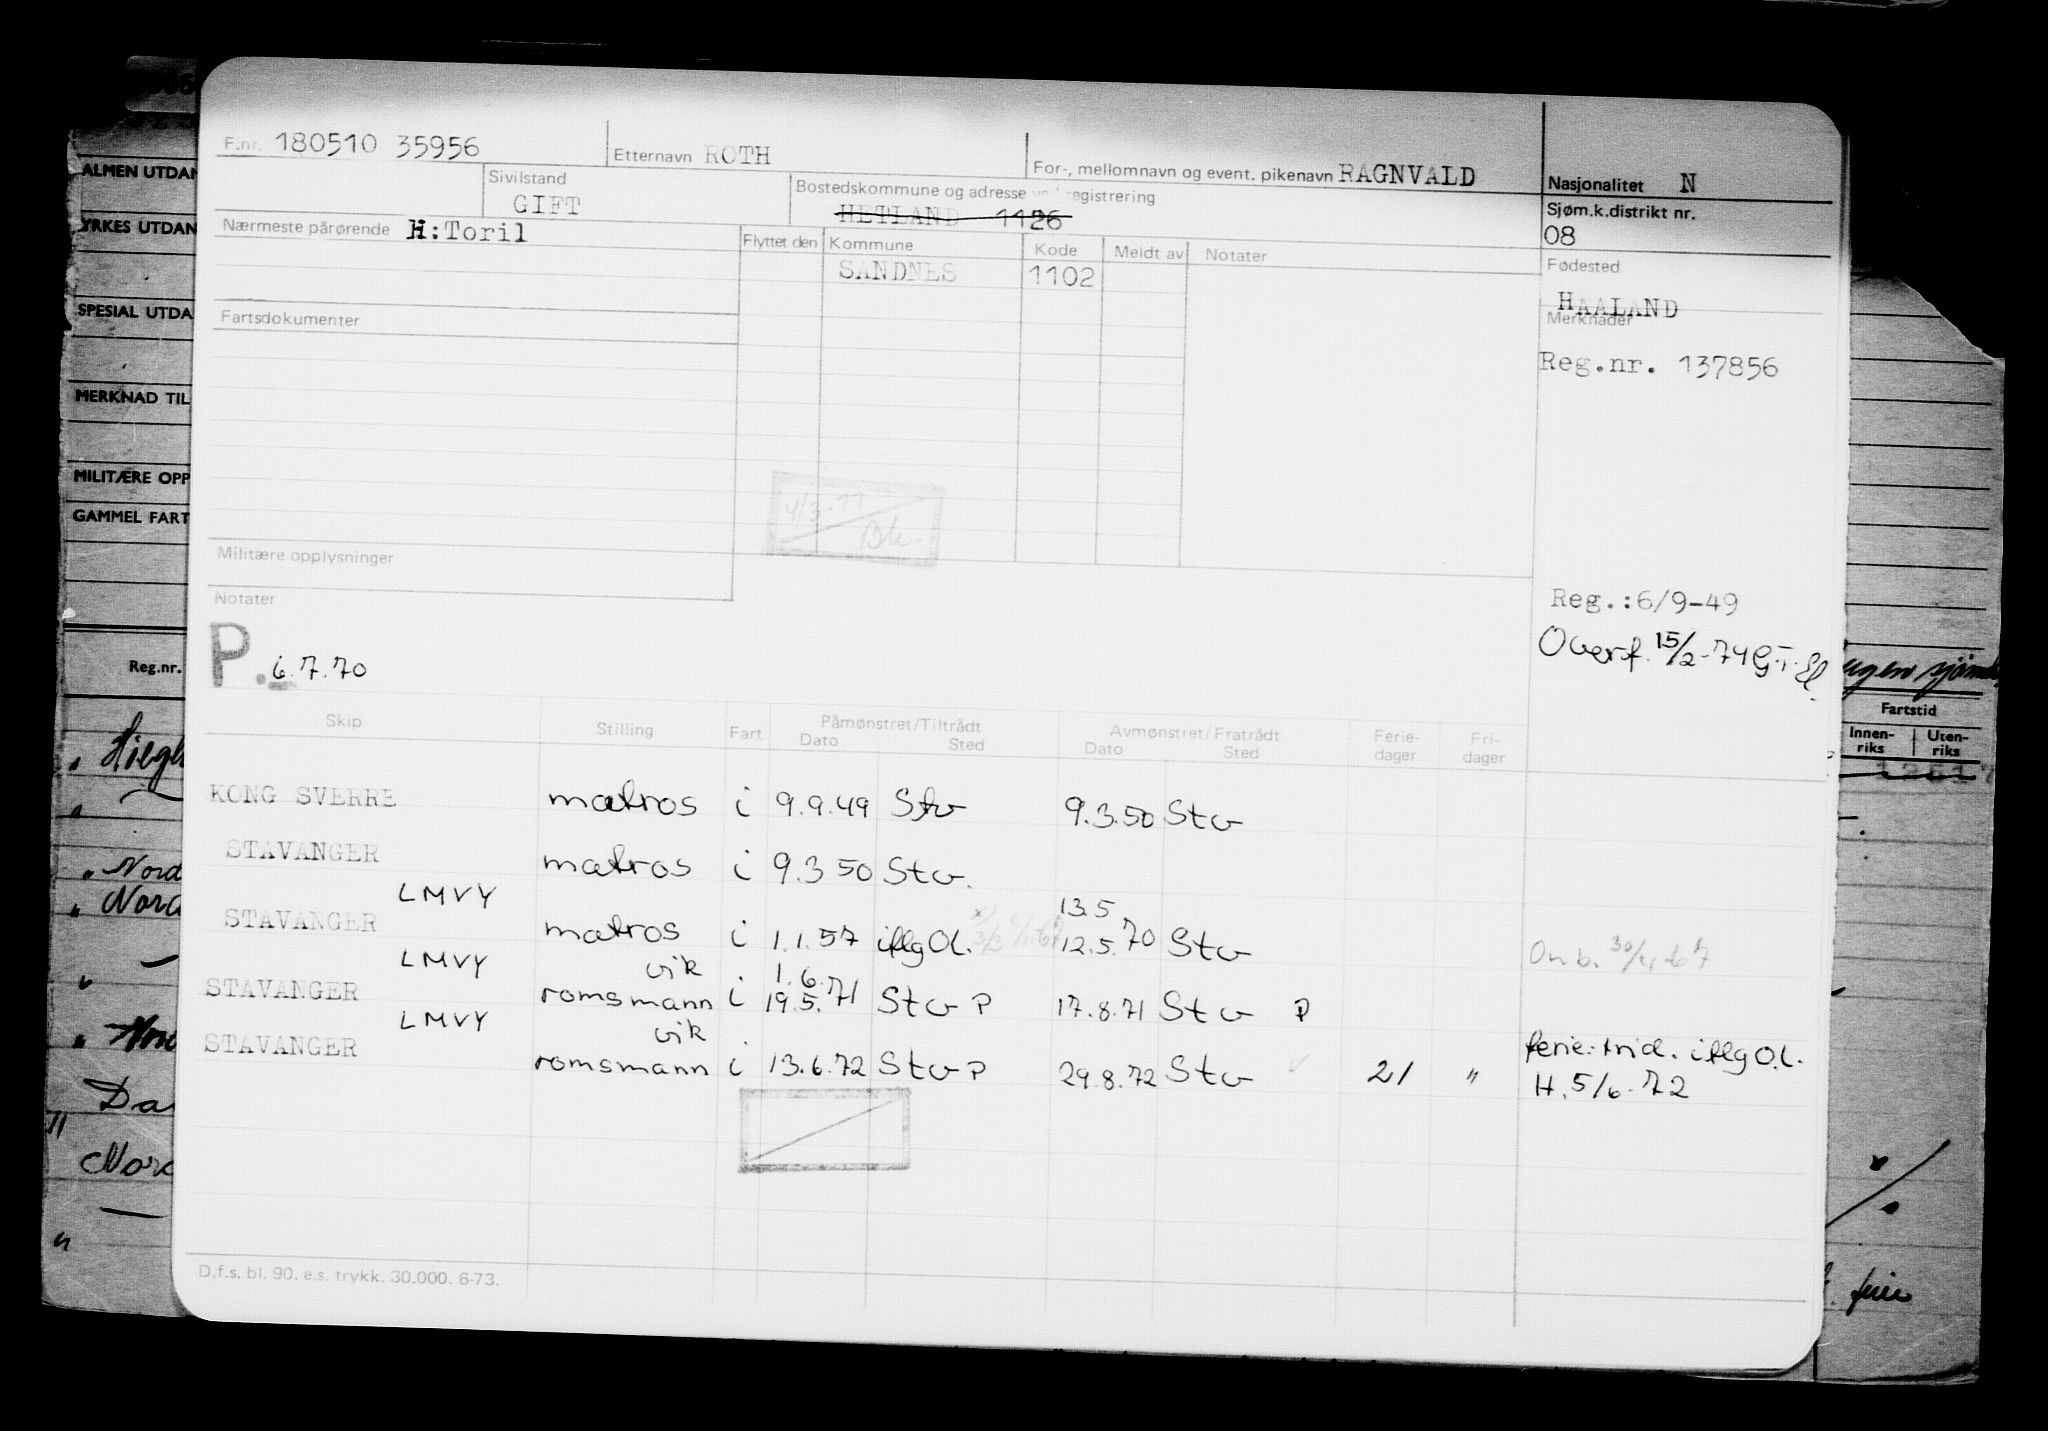 F.nr. 180510 35956 Etternavn ROTH For-, mellomnavn og event. pikenavn RAGNVALD Nasjonalitet N
Sivilstand GIFT Bostedskommune og adresse ved registrering HETLAND 1126 Sjøm.k.distrikt nr. 08
Nærmeste pårørende H:Toril Flyttet den Kommune Kode Meldt av Notater Fødested
SANDNES 1102 HAALAND
Fartsdokumenter Merknader
Reg.nr. 137856
4/3-77
Militære opplysninger
Notater Reg.:6/9-49
P. 6.7.70 Overf. 15/2-74
Skip Stilling Fart Påmønstret/Tiltrådt Dato Sted Avmønstret/Fratrådt Dato Sted Ferie-dager Fri-dager
KONG SVERRE matros i 9.9.49 Stv 9.3.50 Stv
STAVANGER matros i 9.3 50 Stv.
LMVY 13.5
STAVANGER matros i 1.1.57 iflg OL. 12.5.70 Stv
LMVY vik 1.6.
STAVANGER romsmann i 19.5.71 Stv P 17.8.71 Stv P
LMVY vik ferie: frid. iflg O.L.
STAVANGER romsmann i 13.6.72 Stv P 29.8.72 Stv 21 " H. 5/6-72
D.f.s. bl. 90. e.s. trykk. 30.000. 6-73.
ALMEN UTDAN
YRKES UTDAN
SPESIAL UTDA
MERKNAD TIL
MILITÆRE OPP
GAMMEL FART
Reg.nr.
Nord
Nord
Fartstid
Innen-riks Uten-riks